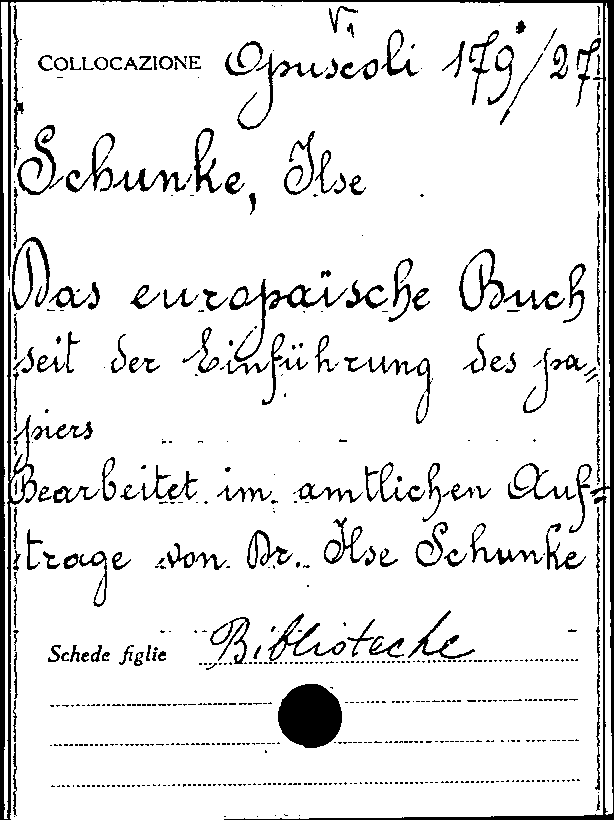 V.
COLLOCAZIONE Opuscoli 179/27
Schunke, Ilse
Das europaïsche Buch
seit der Einführung des pa=
piers
Bearbeitet im amtlichen Auf=
trage von Dr. Ilse Schunke
Schede figlie Biblioteche